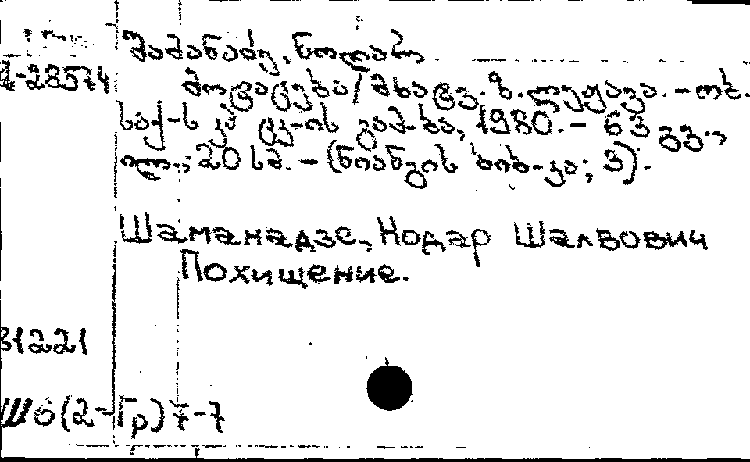 შამანაძე, ნოდარ
-28574 მოტაცება / მხატვ. ზ. ლეჟავა. - თბ.
საქ-ს კპ ცკ-ის გამ-ბა, 1980. - 63 გვ.,
ილ.; 20 სმ. - (ნიანგის ბიბ-კა; 3).
Шаманадзе, Нодар Шалвович
Похищение.
31221
Ш6(2-Гр)7-7